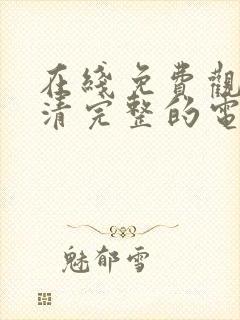 在綫免費觀
清完整的電
魅郁雪